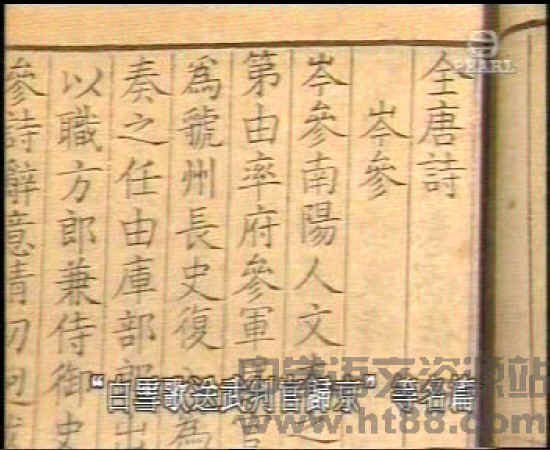 全唐詩
岑參
岑參南陽人文
第由率府參軍
為虢州長史復
奏之任由庫部郎出
以職方郎兼侍御史
參詩辭意清切迥
PEARL
“白雪歌送武判官歸京”等名篇
中学语文资源站
www.ht88.com